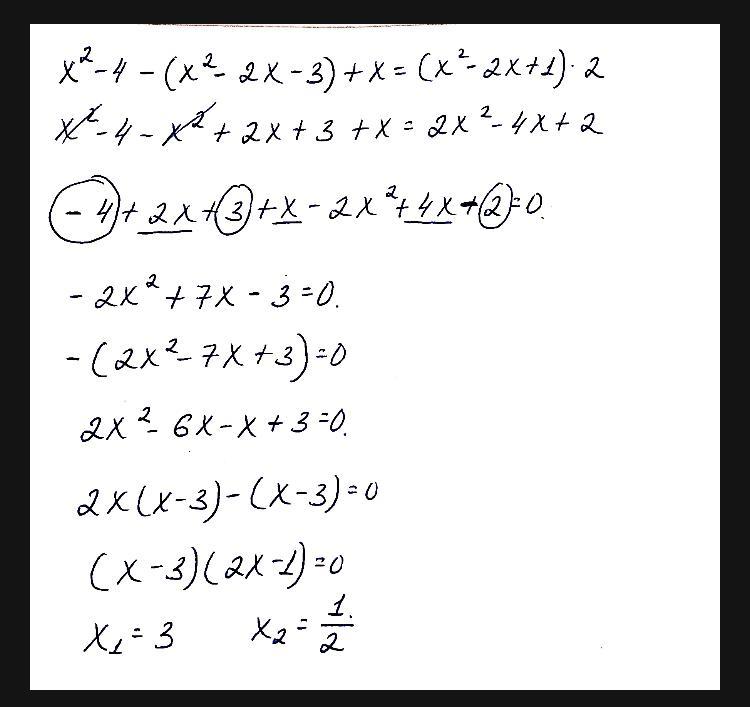 x² - 4 - (x² - 2x - 3) + x = (x² - 2x + 1) · 2
x² - 4 - x² + 2x + 3 + x = 2x² - 4x + 2
- 4 + 2x + 3 + x - 2x² + 4x - 2 = 0.
- 2x² + 7x - 3 = 0.
- (2x² - 7x + 3) = 0
2x² - 6x - x + 3 = 0.
2x(x - 3) - (x - 3) = 0
(x - 3)(2x - 1) = 0
x₁ = 3 x₂ = 1/2